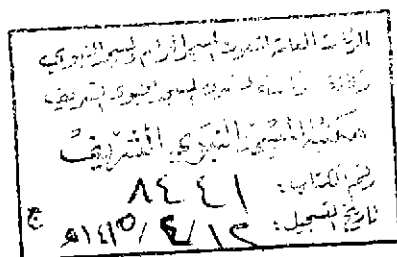 الرئاسة العامة لشئون المسجد الحرام والمسجد النبوي
وكالة الرئاسة لشئون المسجد النبوي الشريف
مكتبة المسجد النبوي الشريف
رقم الكتاب: ٨٤٤١
تاريخ التسجيل: ١٢/٤/١٤١٥هـ
ج